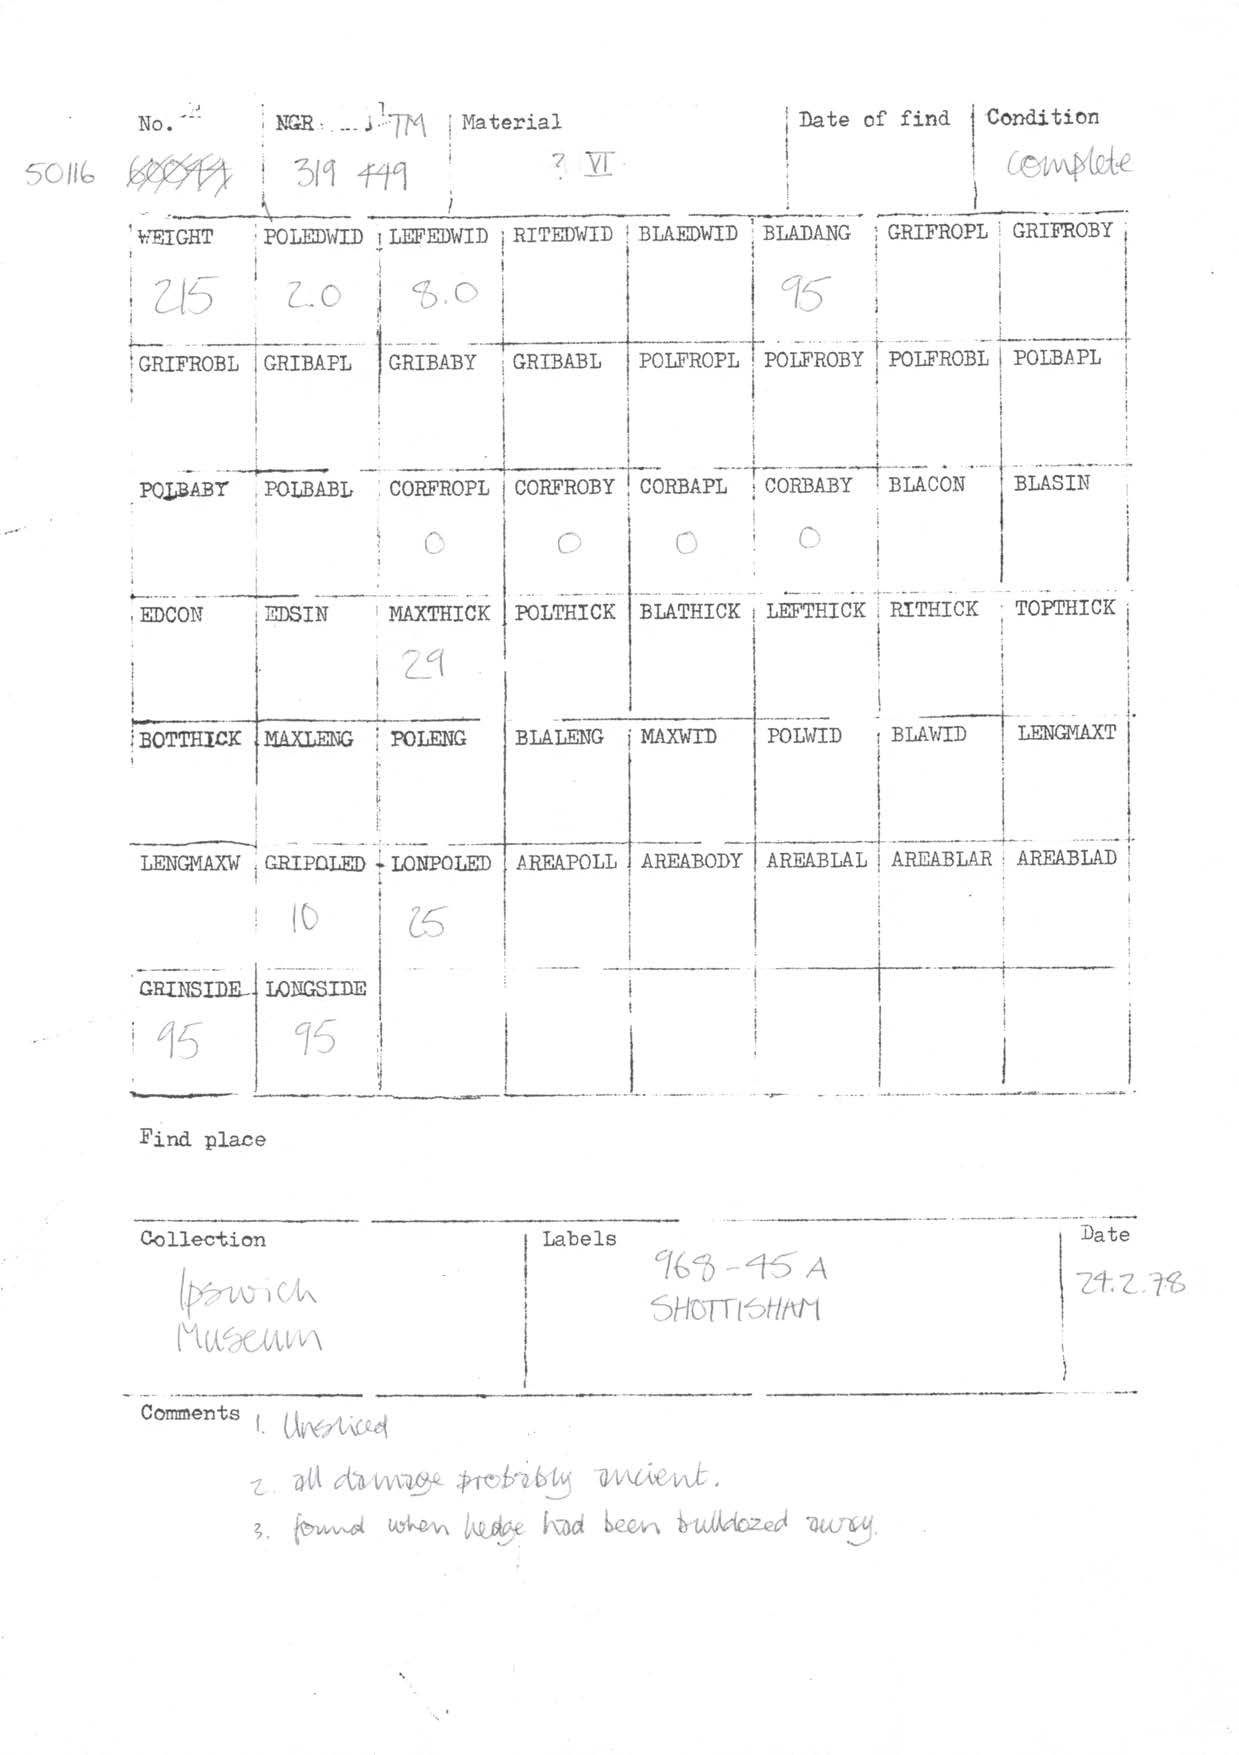 No. NGR TM Material Date of find Condition
50116 319 449 ? VI complete
WEIGHT POLEDWID LEFEDWID RITEDWID BLAEDWID BLADANG GRIFROPL GRIFROBY
215 2.0 8.0 95
GRIFROBL GRIBAPL GRIBABY GRIBABL POLFROPL POLFROBY POLFROBL POLBAPL
POLBABY POLBABL CORFROPL CORFROBY CORBAPL CORBABY BLACON BLASIN
0 0 0 0
EDCON EDSIN MAXTHICK POLTHICK BLATHICK LEFTHICK RITHICK TOPTHICK
29
BOTTHICK MAXLENG POLENG BLALENG MAXWID POLWID BLAWID LENGMAXT
LENGMAXW GRIPOLED LONPOLED AREAPOLL AREABODY AREABLAL AREABLAR AREABLAD
10 25
GRINSIDE LONGSIDE
95 95
Find place
Collection Labels Date
968-45 A
Ipswich SHOTTISHAM 24.2.78
Museum
Comments 1. Unsliced
2. all damage probably ancient.
3. found when hedge had been bulldozed away.